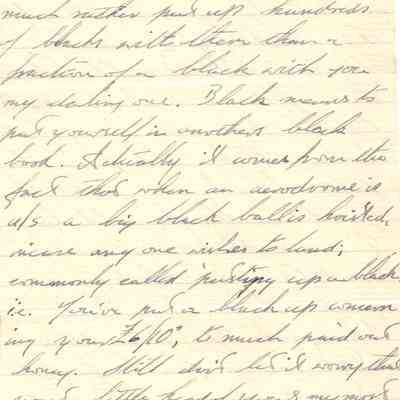 much rather put up hundreds
of blacks with them than a
fraction of a black with you
my darling one. Black means to
put yourself in anothers black
book. Actually it comes from the
fact that when an aerodrome is
u/s a big black ball is hoisted,
incase any one wishes to land;
commonly called "putting up a black"
i.e. You've put a black up concern
ing your £6/10", to much paid out
honey. Still don't let it worry that
little head of yours my most